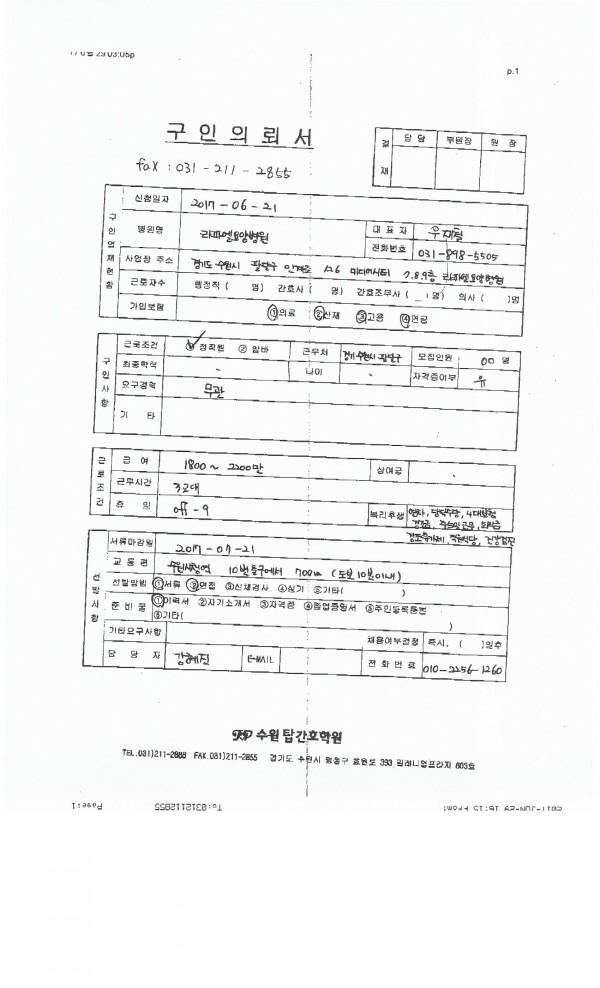 03:05p
p.1
구 인 의 뢰 서
결 재 담 당 부원장 원 장
fax : 031 - 211 - 2855
구인업체현황
신청일자 2017 - 06 - 21
병원명 라파엘요양병원 대 표 자 우재철
전화번호 031-898-5505
사업장 주소 경기도 수원시 팔달구 인계로 126 7.8.9층 라파엘요양병원
근로자수 행정직 ( 명) 간호사 ( 명) 간호조무사 ( 명) 의사 ( )명
가입보험 ①의료 ②산재 ③고용 ④연금
구인사항
근로조건 ① 정직원 ② 알바 근무처 경기 수원시 팔달구 모집인원 00 명
최종학력 - 나이 - 자격증여부 유
요구경력 무관
기 타
근로조건
급 여 1800 ~ 2200만 상여금 -
근무시간 3교대
휴 일 off - 9 복리후생 4대보험
직원식당, 건강검진
선발사항
서류마감일 2017 - 07 - 21
교 통 편 수원시청역 10번출구에서 700m (도보 10분이내)
선발방법 ①서류 ②면접 ③신체검사 ④실기 ⑤기타( )
준 비 물 ①이력서 ②자기소개서 ③자격증 ④졸업증명서 ⑤주민등록등본
⑥기타( )
기타요구사항 채용여부결정 즉시, ( )일후
담 당 자 강혜진 E-MAIL 전 화 번 호 010-2256-1260
TOP 수원 탑간호학원
TEL.031)211-2888 FAX.031)211-2855 경기도 수원시 팔달구 효원로 393 밀레니엄프라자 603호
2017-JUN-29 16:15 From: To:0312112855 Page:1